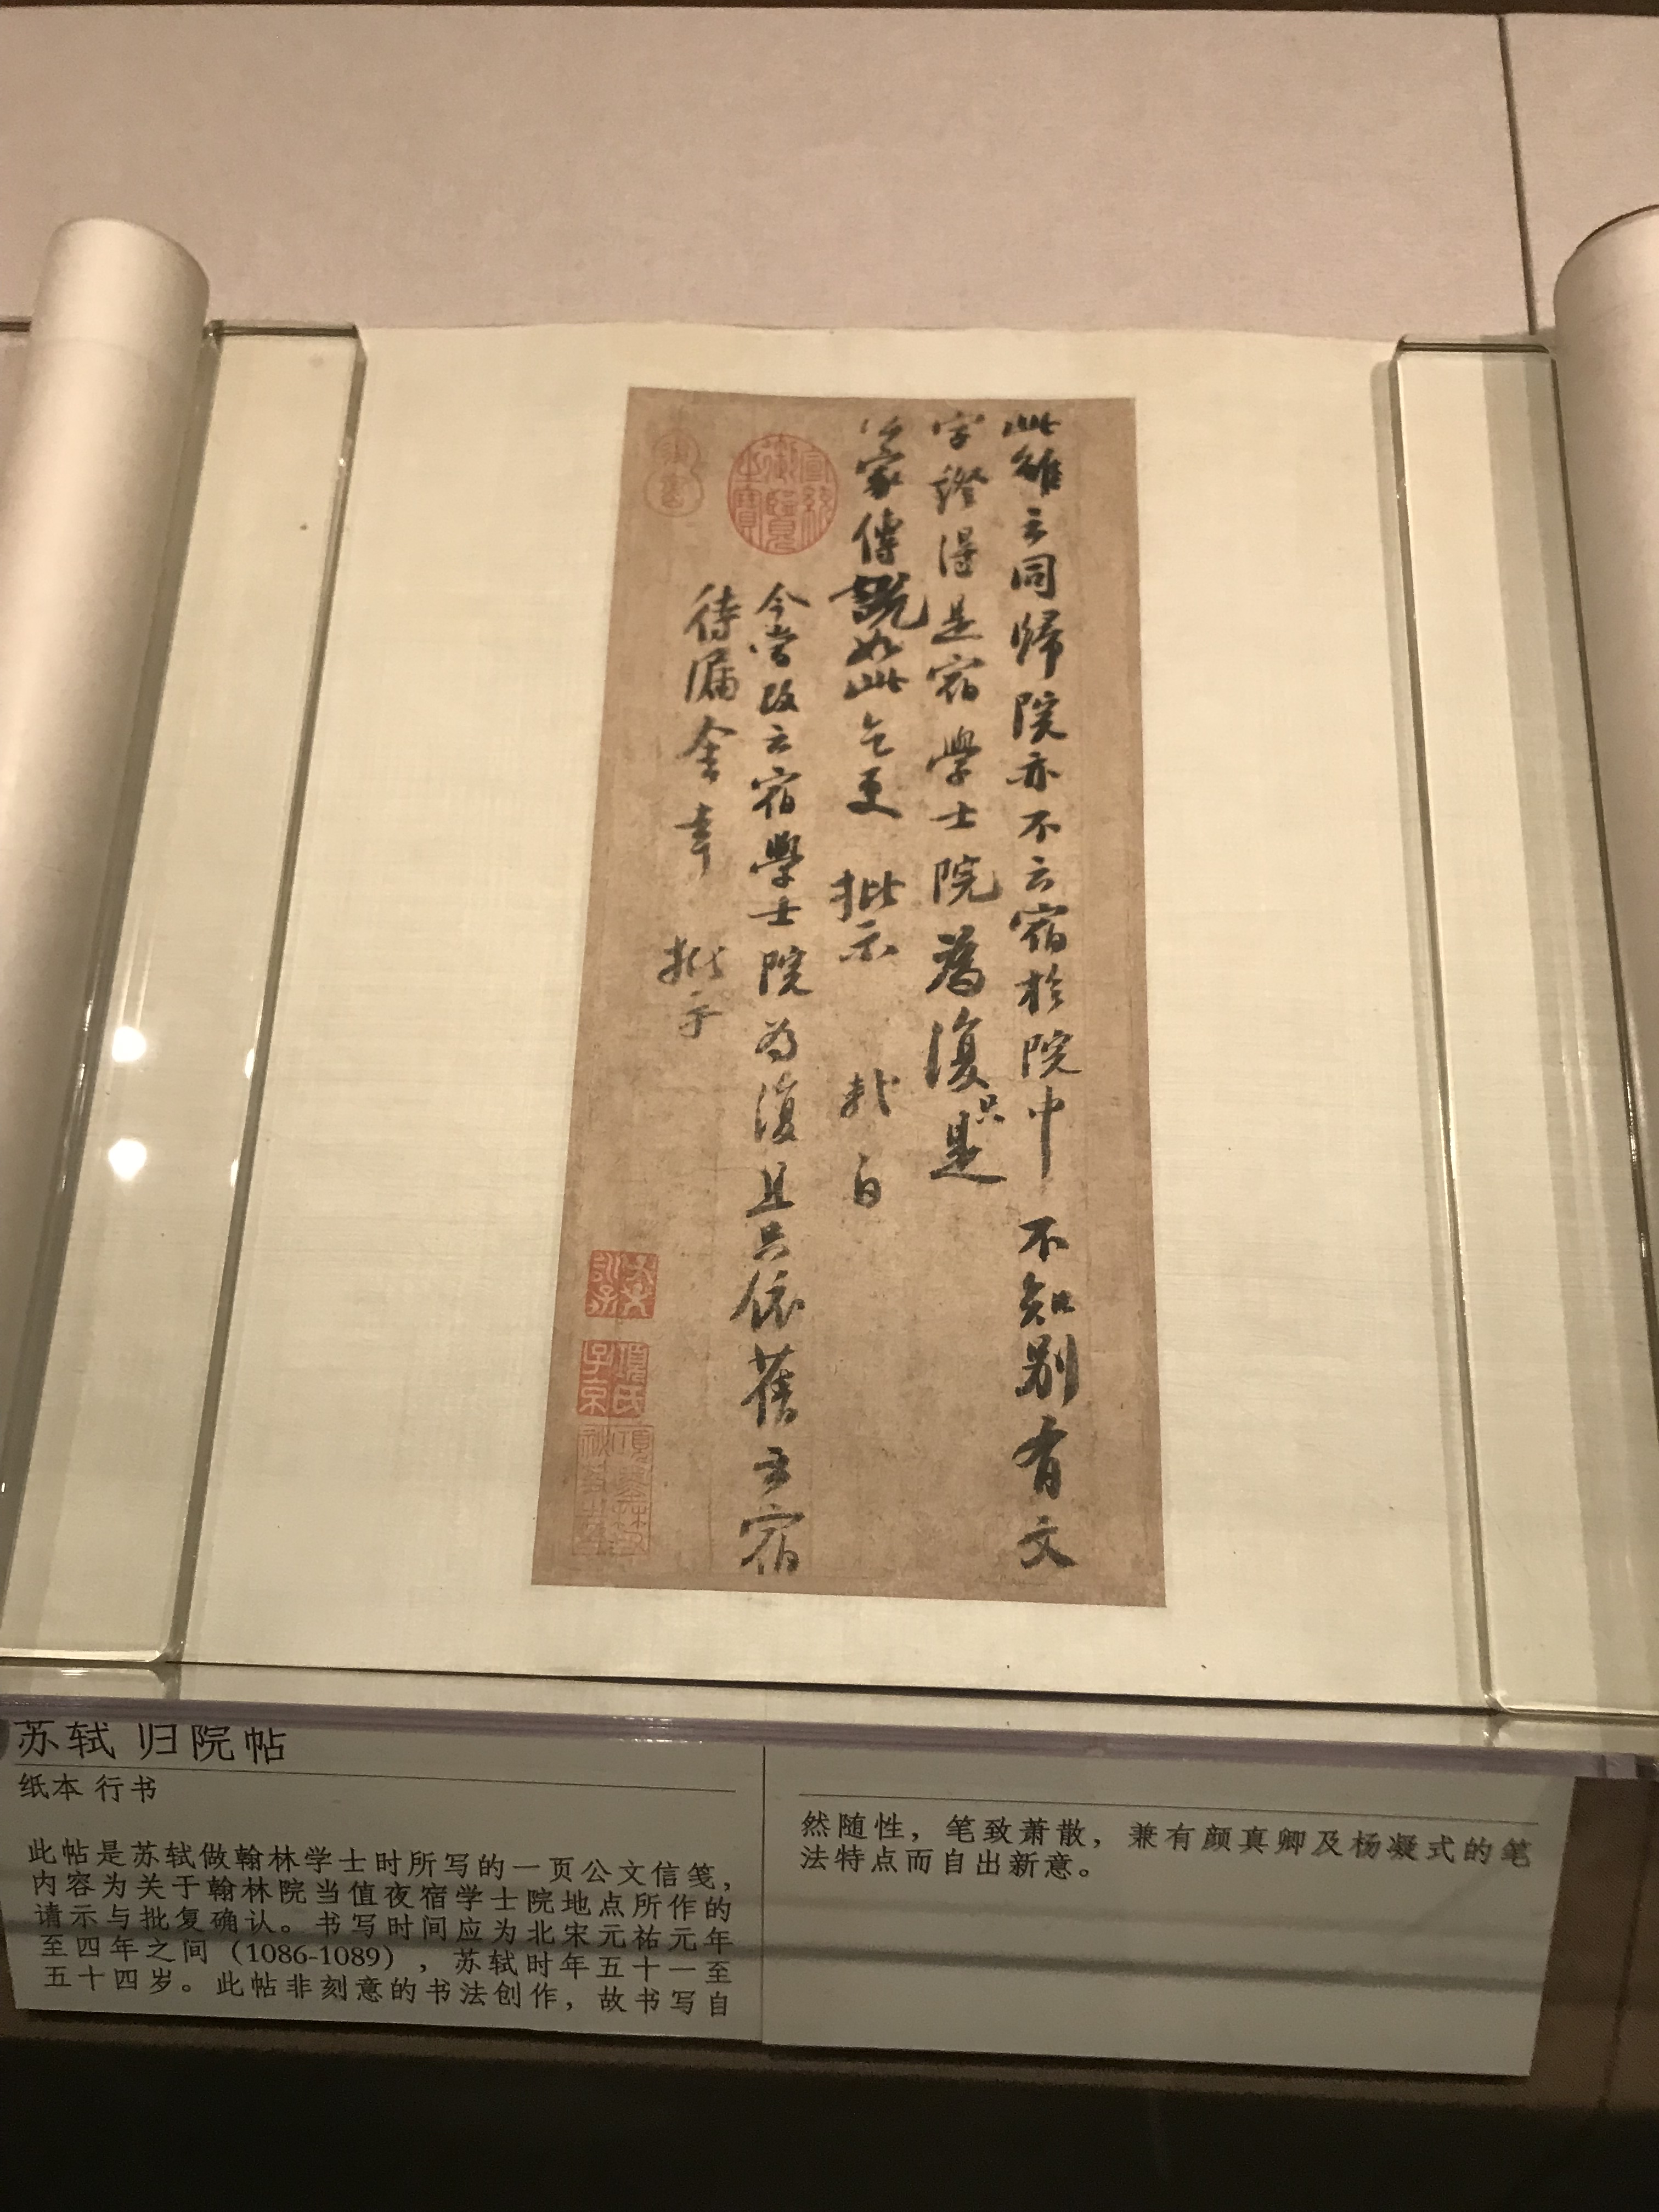 此雖云同歸院亦不云宿於院中不知别有文
字證得是宿學士院為復只是
家傳說如此乞更批示 軾白
今尝改云宿學士院为復且只依舊云宿
待漏舍幸 批示
宣統御覽之寶
項氏子京
苏轼 归院帖
纸本 行书
此帖是苏轼做翰林学士时所写的一页公文信笺，
内容为关于翰林院当值夜宿学士院地点所作的
请示与批复确认。书写时间应为北宋元祐元年
至四年之间（1086-1089），苏轼时年五十一至
五十四岁。此帖非刻意的书法创作，故书写自
然随性，笔致萧散，兼有颜真卿及杨凝式的笔
法特点而自出新意。